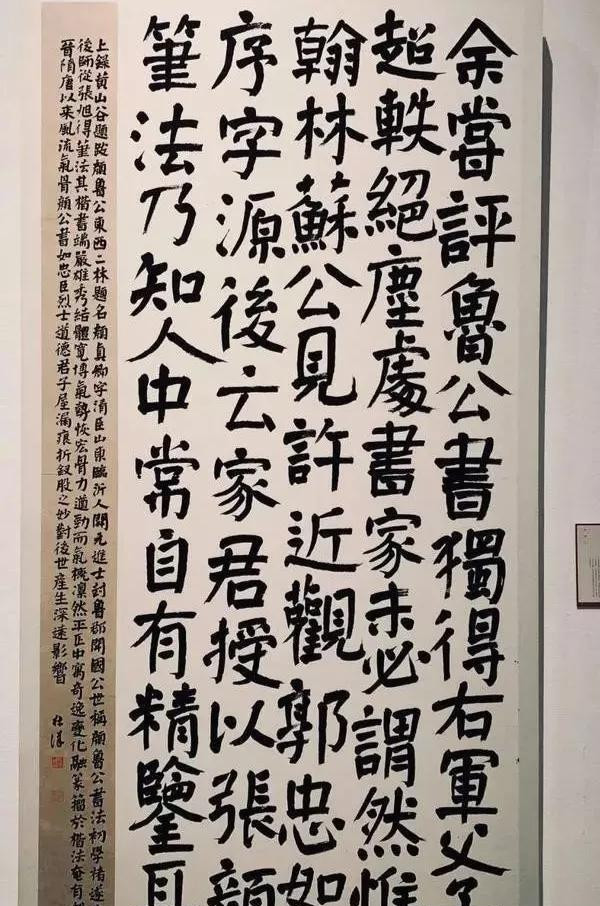 余嘗評魯公書獨得右軍父子
超軼絕塵處書家未必謂然惟
翰林蘇公見許近觀郭忠恕
序字源後云家君授以張顏
筆法乃知人中常自有精鑒耳
上錄黃山谷題跋顏魯公東西二林題名顏真卿字清臣山東臨沂人開元進士封魯郡開國公世稱顏魯公書法初學褚遂
後師從張旭得筆法其楷書端嚴雄秀結體寬博氣勢恢宏骨力遒勁而氣概凜然平正中寓奇逸變化融篆籀於楷法奄有
晉隋唐以来風流氣骨顏公書如忠臣烈士道德君子屋漏痕折釵股之妙對後世產生深遠影響